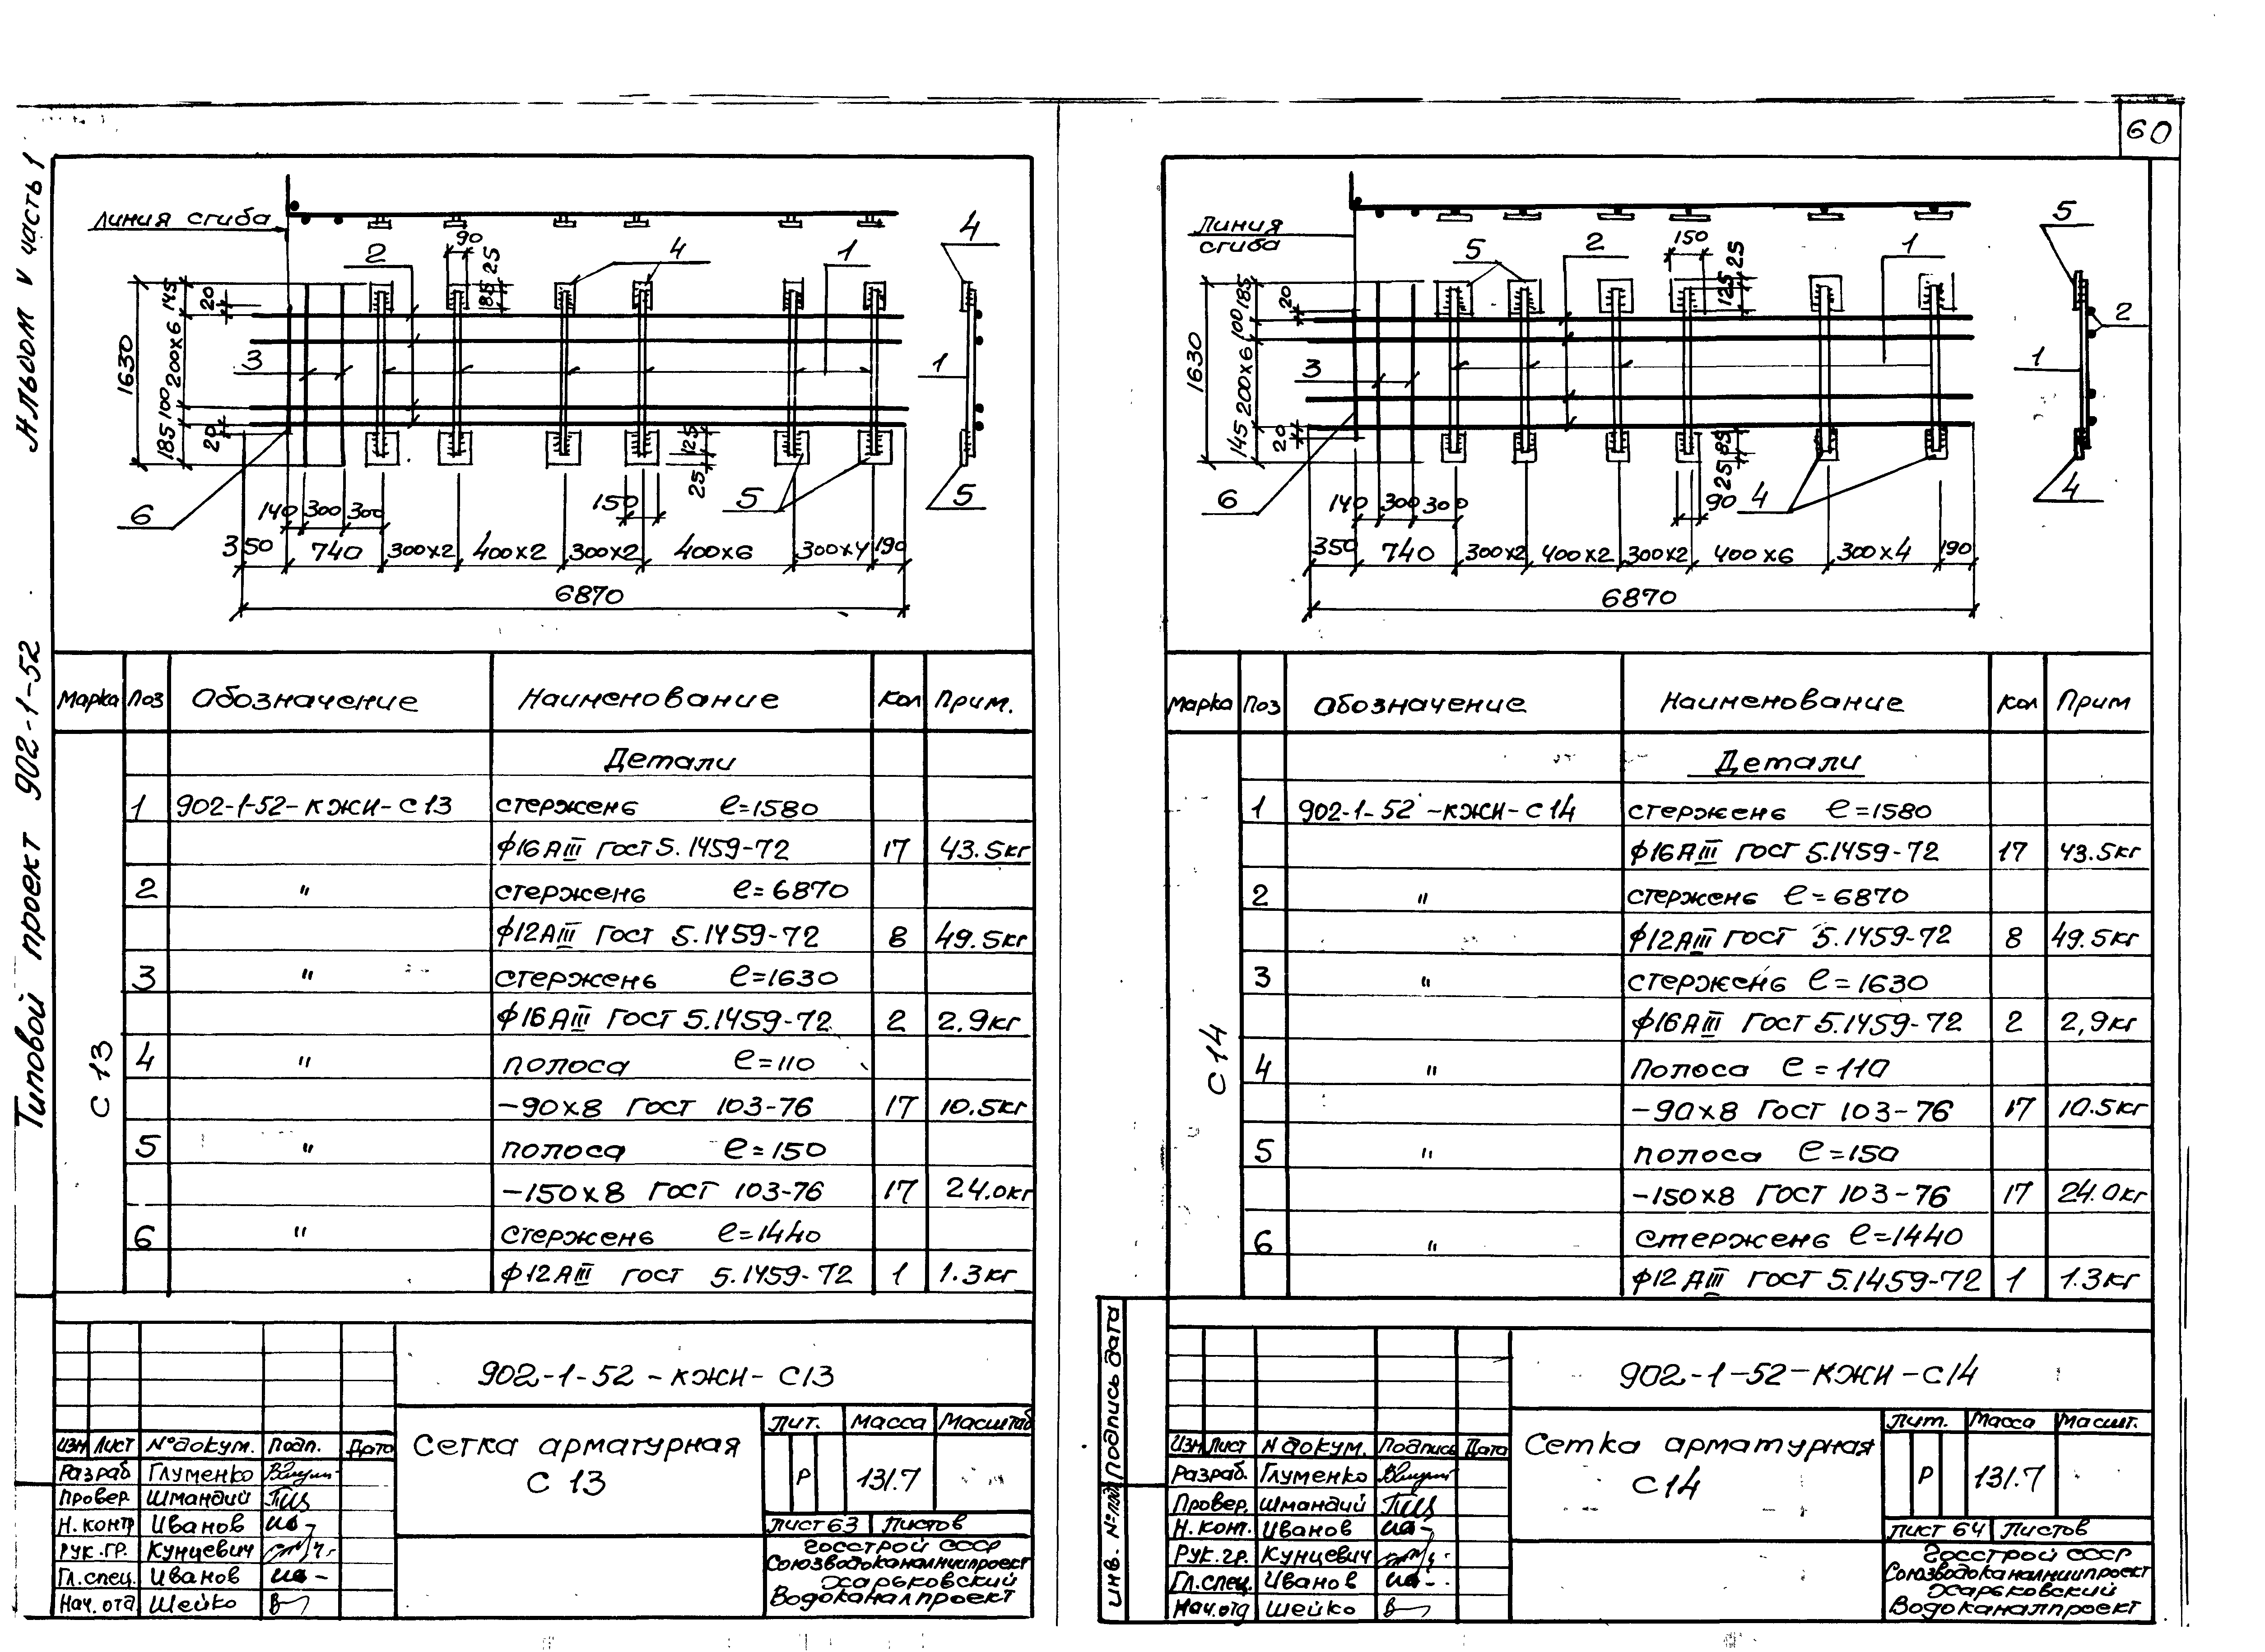 60
Альбом V часть 1
Типовой проект 902-1-52
линия сгиба
2
90
4
1
25
185
145
20
1630
200х6
100
185
20
3
6
140 300 300
150
125
25
5
4
1
5
350 740 300х2 400х2 300х2 400х6 300х4 190
6870
Марка Поз Обозначение Наименование Кол Прим.
Детали
С 13
1 902-1-52-КЖИ-С13 стержень ℓ=1580
ф16АIII ГОСТ 5.1459-72 17 43.5кг
2 " стержень ℓ=6870
ф12АIII ГОСТ 5.1459-72 8 49.5кг
3 " стержень ℓ=1630
ф16АIII ГОСТ 5.1459-72 2 2.9кг
4 " полоса ℓ=110
-90х8 ГОСТ 103-76 17 10.5кг
5 " полоса ℓ=150
-150х8 ГОСТ 103-76 17 24.0кг
6 " стержень ℓ=1440
ф12АIII ГОСТ 5.1459-72 1 1.3кг
902-1-52-КЖИ-С13
Сетка арматурная
С 13
Лит. Масса Масштаб
Р 131.7
Лист 63 Листов
Госстрой СССР
Союзводоканалниипроект
Харьковский
Водоканалпроект
Изм Лист №докум. Подп. Дата
Разраб Глуменко
Провер Шмандий
Н. контр Иванов
Рук.гр. Кунцевич
Гл.спец. Иванов
Нач. отд Шейко
линия
сгиба
5
2
150
1
25
125
185
20
100
1630
200х6
145
20
3
6
140 300 300
85
25
90
4
5
2
1
4
350 740 300х2 400х2 300х2 400х6 300х4 190
6870
Марка Поз Обозначение Наименование Кол Прим
Детали
С 14
1 902-1-52-КЖИ-С14 стержень ℓ=1580
ф16АIII ГОСТ 5.1459-72 17 43.5кг
2 " стержень ℓ=6870
ф12АIII ГОСТ 5.1459-72 8 49.5кг
3 " стержень ℓ=1630
ф16АIII ГОСТ 5.1459-72 2 2,9кг
4 " Полоса ℓ=110
-90х8 ГОСТ 103-76 17 10.5кг
5 " полоса ℓ=150
-150х8 ГОСТ 103-76 17 24.0кг
6 " стержень ℓ=1440
ф12АIII ГОСТ 5.1459-72 1 1.3кг
902-1-52-КЖИ-С14
Сетка арматурная
С14
Лит. Масса Масшт.
Р 131.7
Лист 64 Листов
Госстрой СССР
Союзводоканалниипроект
Харьковский
Водоканалпроект
Изм Лист N докум. Подпись Дата
Разраб. Глуменко
Провер. Шмандий
Н. конт. Иванов
Рук.гр. Кунцевич
Гл.спец. Иванов
Нач.отд Шейко
инв. №подл Подпись дата